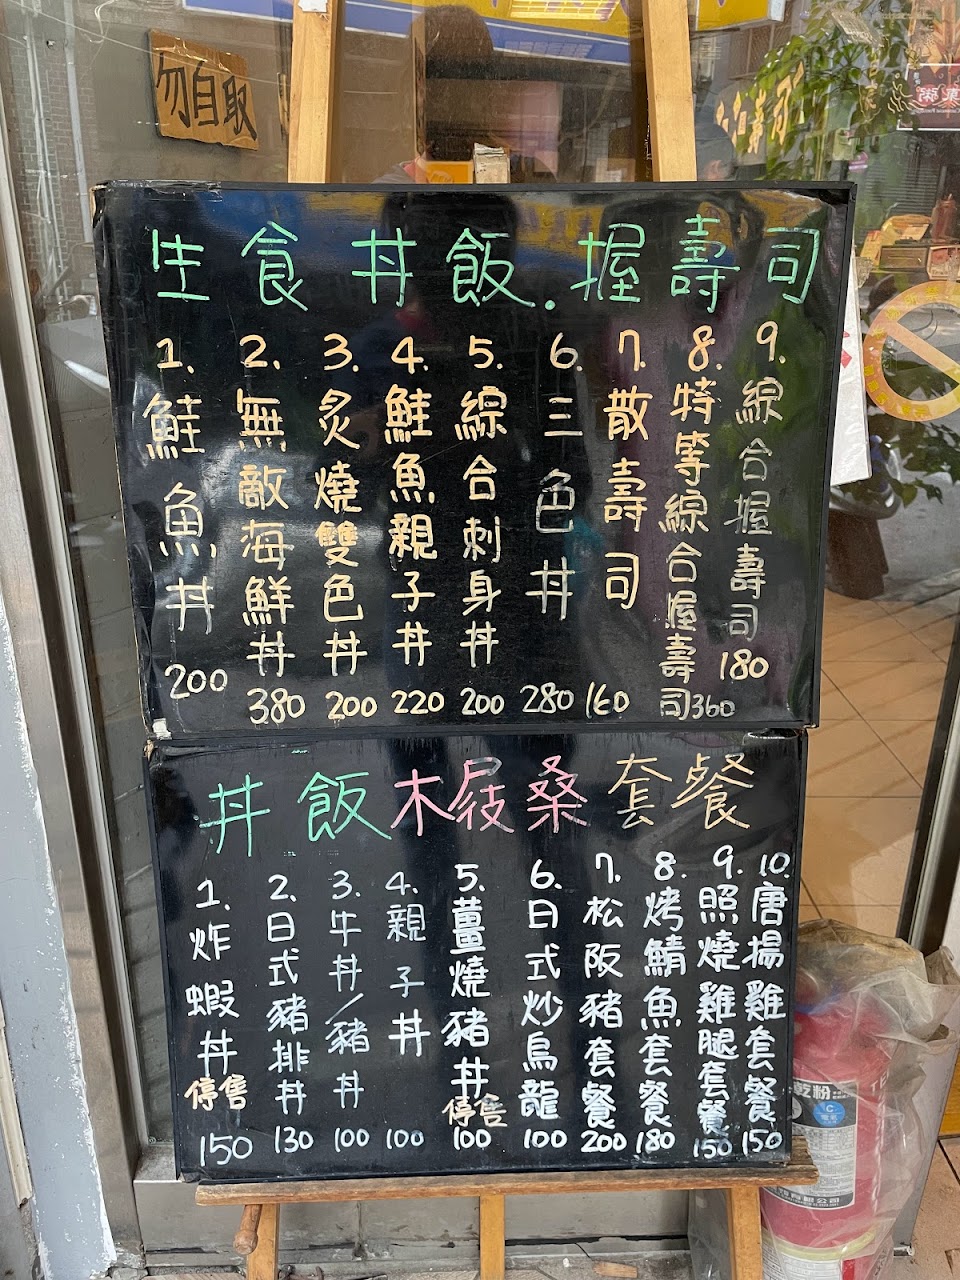 勿自取
生食丼飯.握壽司
1.鮭魚丼 200
2.無敵海鮮丼 380
3.炙燒雙色丼 200
4.鮭魚親子丼 220
5.綜合刺身丼 200
6.三色丼 280
7.散壽司 160
8.特等綜合握壽司 360
9.綜合握壽司 180
丼飯木屐桑套餐
1.炸蝦丼 停售 150
2.日式豬排丼 130
3.牛丼/豬丼 100
4.親子丼 100
5.薑燒豬丼 停售 100
6.日式炒烏龍 100
7.松阪豬套餐 200
8.烤鯖魚套餐 180
9.照燒雞腿套餐 150
10.唐揚雞套餐 150
乾粉